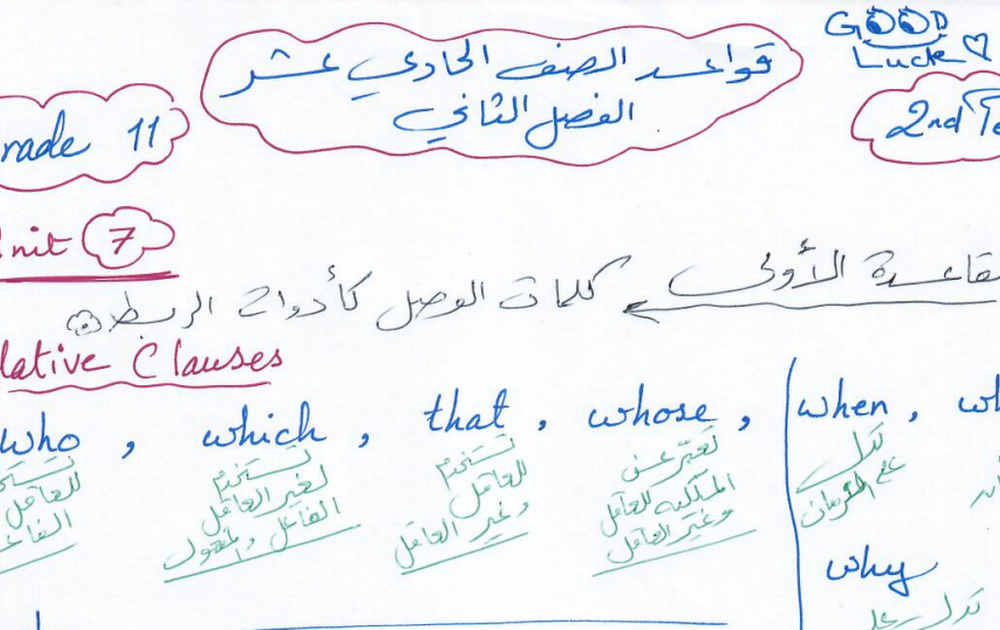 GOOD
Luck
قواعد الصف الحادي عشر
الفصل الثاني
rade 11
2nd Te
nit 7
قاعدة الأولى ← كلمات الوصل كأدوات الربط
lative Clauses
who , which , that , whose , when , wh
تستخدم لغير العاقل الفاعل والمفعول
تستخدم للعاقل وغير العاقل
تعبر عن الملكية للعاقل وغير العاقل
تدل على الزمان
للعاقل
why
تدل على